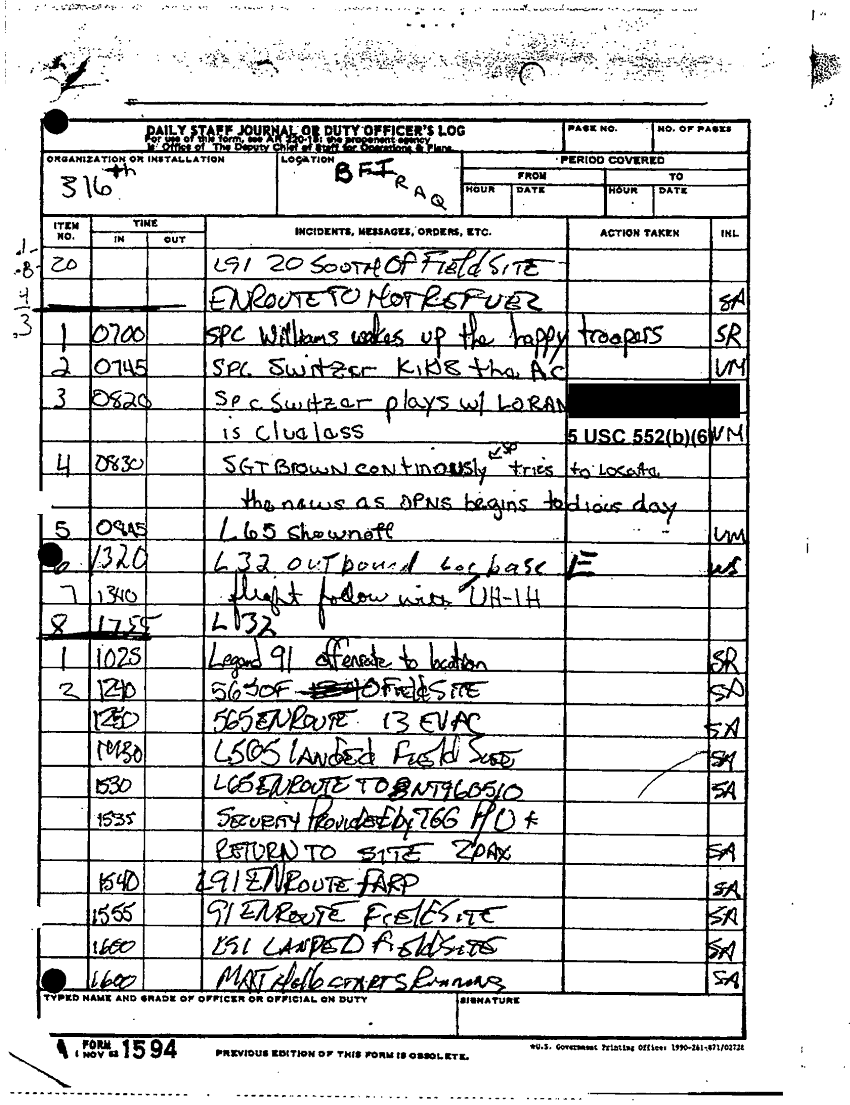 DAILY STAFF JOURNAL OR DUTY OFFICER'S LOG
For use of this form, see AR 220-15; the proponent agency
is Office of The Deputy Chief of Staff for Operations & Plans.
PAGE NO.
NO. OF PAGES
ORGANIZATION OR INSTALLATION
316th
LOCATION
BFIRAQ
PERIOD COVERED
FROM
TO
HOUR DATE HOUR DATE
ITEM NO.
TIME
IN OUT
INCIDENTS, MESSAGES, ORDERS, ETC.
ACTION TAKEN
INL
20 L91 20 SOUTH OF FieldSITE
ENROUTE TO HOT REFUEL SA
1 0700 SPC Williams wakes up the happy troopers SR
2 0745 SPC Switzer KINS the AC VM
3 0820 Spc Switzer plays w/ LORAN
is clueless 5 USC 552(b)(6) VM
4 0830 SGT BROWN continously sp tries to locate
the news as OPNS begins tedious day
5 0945 L65 Shownoff VM
6 1320 L32 outbound Log base E WS
7 1340 flight follow with UH-1H
8 1755 L 32
1 1025 Legend 91 to location SR
2 1240 565 OF FieldSITE SA
1250 565 ENROUTE 13 EVAC SA
1430 L505 LANDED Field Site SA
1530 L65 ENROUTE TO NT960510 SA
1535 SECURITY Provided by
RETURN TO SITE 2 PAX SA
1540 L91 ENROUTE FARP SA
1555 91 ENROUTE FIELDSITE SA
1600 L91 LANDED FieldSITE SA
1600 STARTS Running SA
TYPED NAME AND GRADE OF OFFICER OR OFFICIAL ON DUTY
SIGNATURE
FORM 1 NOV 62 1594
PREVIOUS EDITION OF THIS FORM IS OBSOLETE.
*U.S. Government Printing Office: 1990-261-871/02732